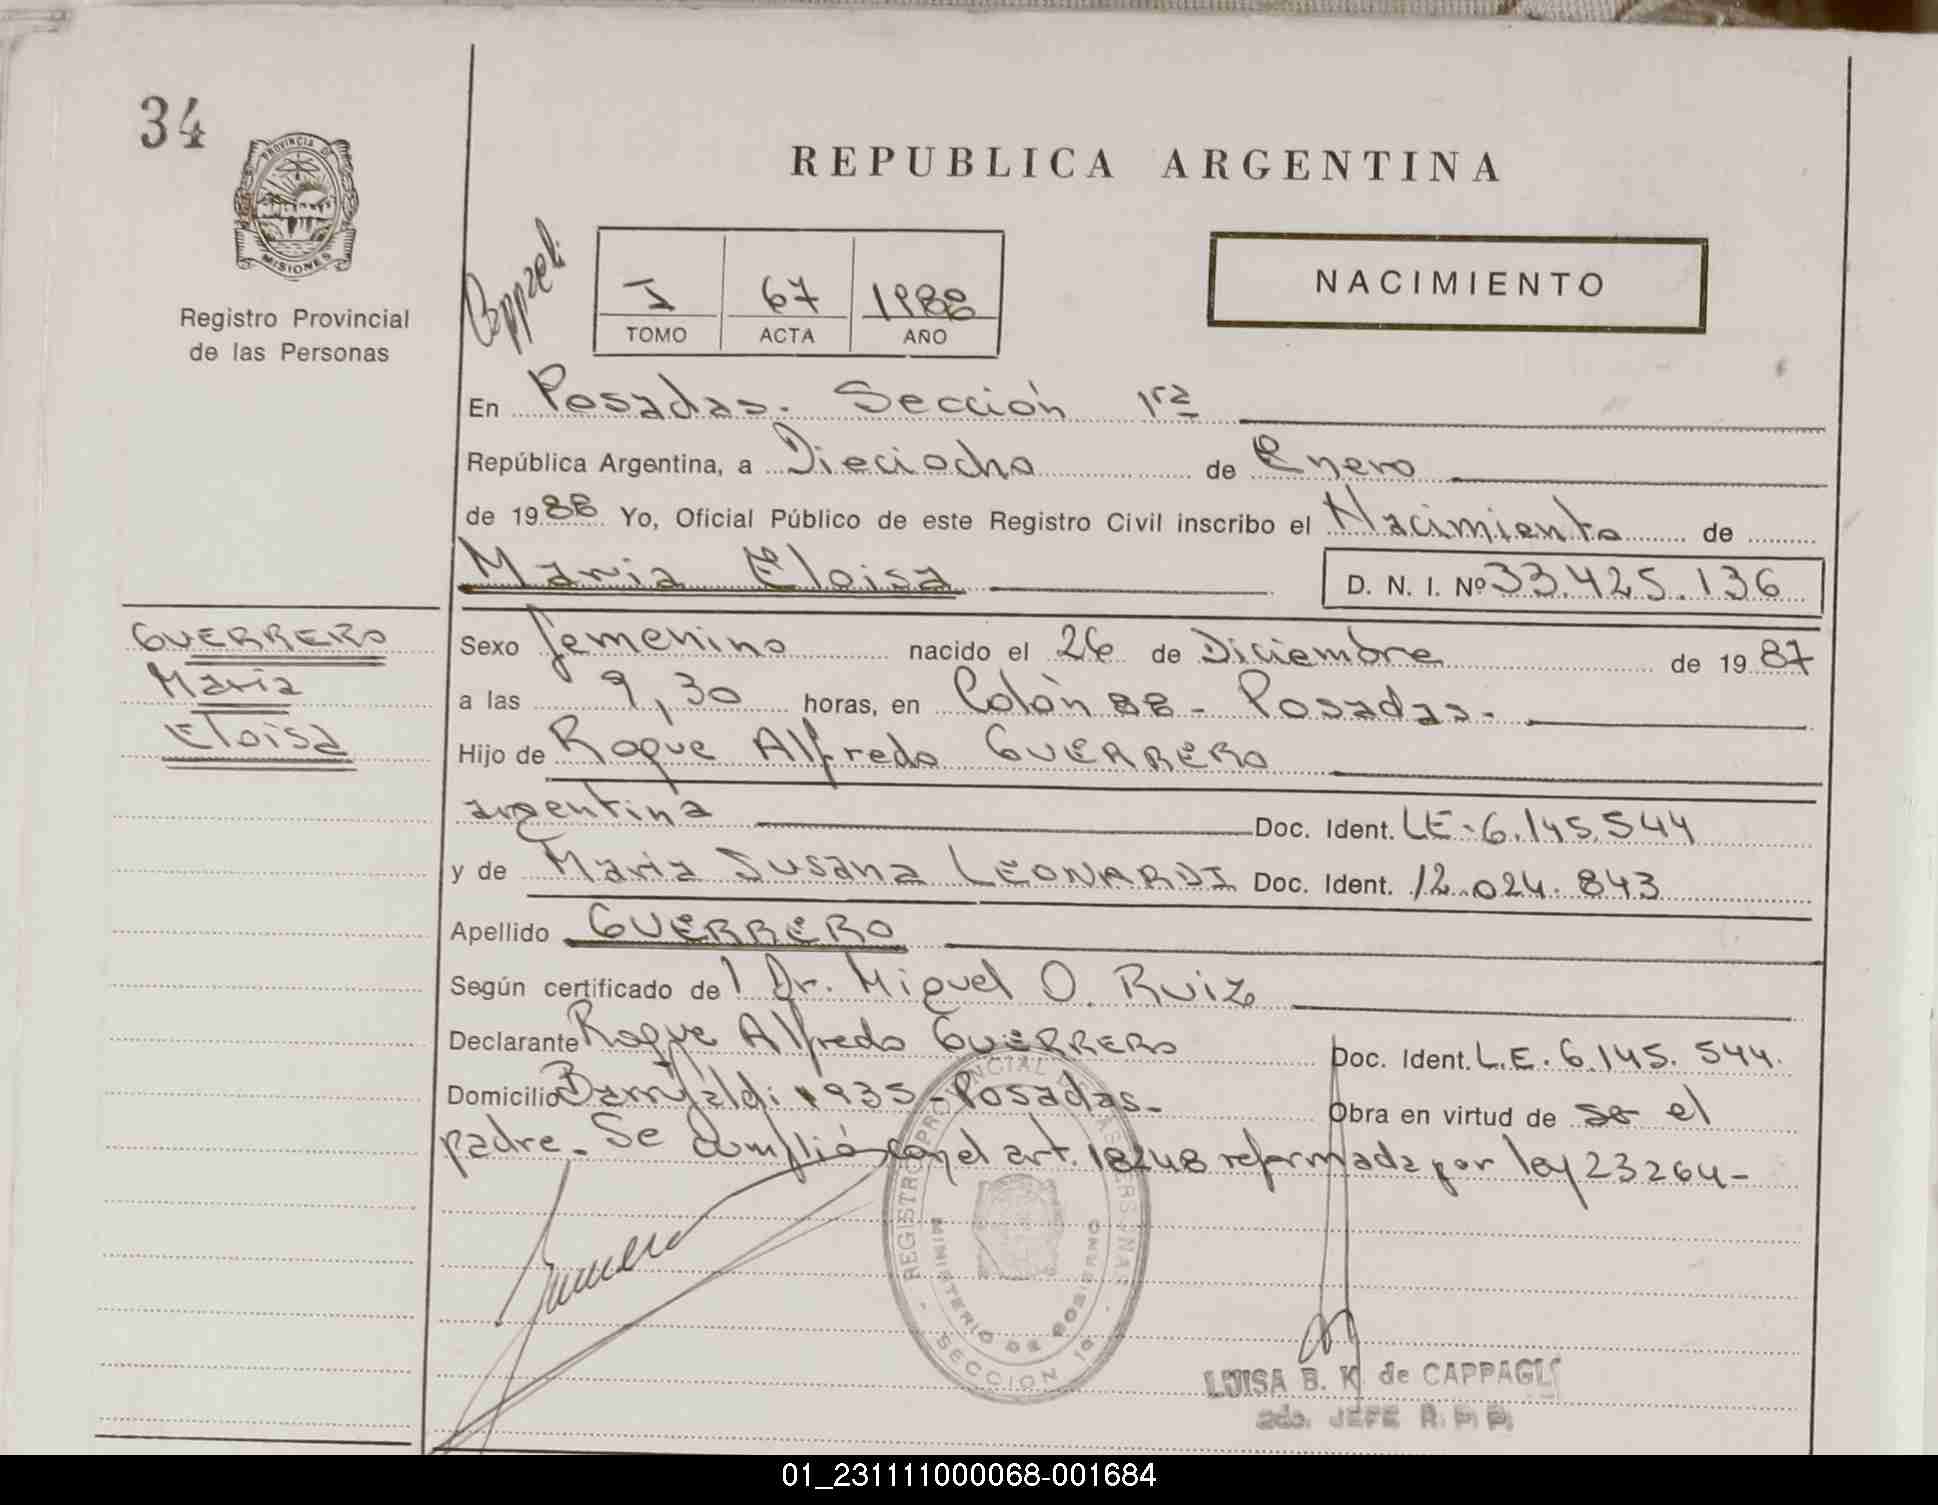 34
PROVINCIA DE
MISIONES
Registro Provincial
de las Personas
REPUBLICA ARGENTINA
I 67 1988
TOMO ACTA AÑO
NACIMIENTO
En Posadas. Sección 1ra
República Argentina, a Dieciocho de Enero
de 1988 Yo, Oficial Público de este Registro Civil inscribo el Nacimiento de
Maria Eloisa D. N. I. Nº 33.425.136
GUERRERO
Maria
Eloisa
Sexo femenino nacido el 26 de Diciembre de 1987
a las 9,30 horas, en Colón 88 - Posadas.
Hijo de Roque Alfredo GUERRERO
argentina Doc. Ident. LE-6.145.544
y de Maria Susana LEONARDI Doc. Ident. 12.024.843
Apellido GUERRERO
Según certificado del Dr. Miguel O. Ruiz
Declarante Roque Alfredo GUERRERO Doc. Ident. L.E. 6.145.544.
Domicilio 1935 - Posadas- Obra en virtud de se el
padre. Se cumplió con el art. 18248 reformada por ley 23264-
REGISTRO PROVINCIAL DE LAS PERSONAS
MINISTERIO DE GOBIERNO
SECCION 1a
LUISA B. K. de CAPPAGLI
2do. JEFE R. P. P.
01_231111000068-001684